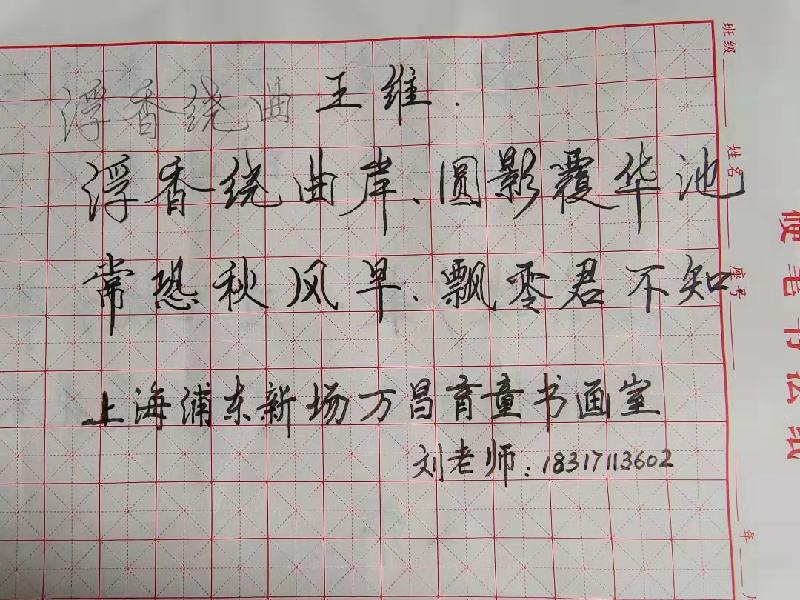 浮香绕曲 王维.
浮香绕曲岸、圆影覆华池
常恐秋风早、飘零君不知
上海浦东新场万昌育童书画室
刘老师:18317113602
班级
姓名
座号
硬笔书法纸
年